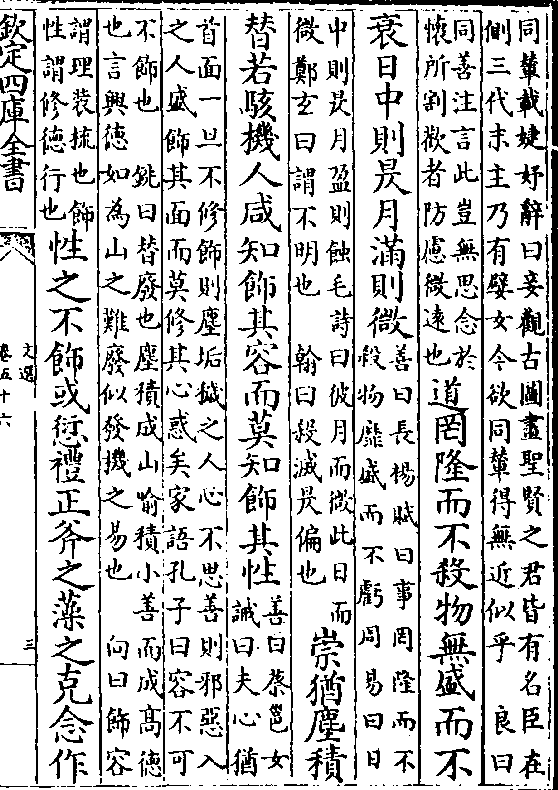 同輦載婕妤辭曰妾觀古圖畫聖賢之君皆有名臣在
側三代末主乃有嬖女今欲同輦得無近似乎　良曰
同善注言此豈無思念於
懷所割歡者防慮微遠也
道罔隆而不殺物無盛而不
衰日中則昃月滿則微
善曰長楊賦曰事罔隆而不
殺物靡盛而不虧周易曰日
中則昃月盈則蝕毛詩曰彼月而微此日而
微鄭玄曰謂不明也　翰曰殺滅昃偏也
崇猶塵積
替若駭機人咸知飾其容而莫知飾其性
善曰蔡邕女
誡曰夫心猶
首面一旦不修飾則塵垢穢之人心不思善則邪惡入
之人盛飾其面而莫修其心惑矣家語孔子曰容不可
不飾也　銑曰替廢也塵積成山喻積小善而成高德
也言興德如為山之難廢似發機之易也　向曰飾容
謂理裝梳也飾
性謂修德行也
性之不飾或愆禮正斧之藻之克念作
欽定四庫全書
文選
卷五十六
三